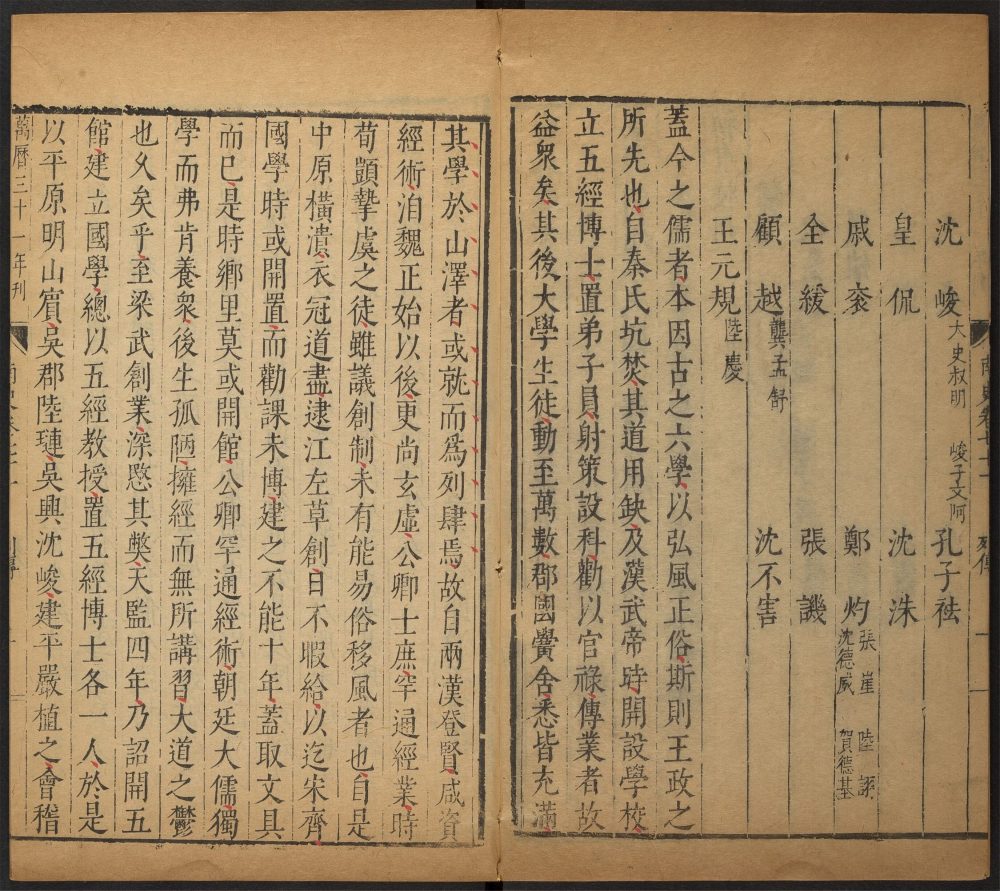 沈峻 大史叔明 峻子文阿 孔子祛
皇侃 沈洙
戚衮 鄭灼 張崖 陸詡 沈德威 賀德基
全緩 張譏
顧越 龔孟舒 沈不害
王元規 陸慶
蓋今之儒者本因古之六學以弘風正俗斯則王政之
所先也自秦氏坑焚其道用缺及漢武帝時開設學校
立五經博士置弟子員射策設科勸以官祿傳業者故
益衆矣其後大學生徒動至萬數郡國黌舍悉皆充滿
其學於山澤者或就而爲列肆焉故自兩漢登賢咸資
經術洎魏正始以後更尚玄虛公卿士庶罕通經業時
荀顗摯虞之徒雖議創制未有能易俗移風者也自是
中原橫潰衣冠道盡逮江左草創日不暇給以迄宋齊
國學時或開置而勸課未博建之不能十年蓋取文具
而已是時鄉里莫或開館公卿罕通經術朝廷大儒獨
學而弗肯養衆後生孤陋擁經而無所講習大道之鬱
也久矣乎至梁武創業深愍其弊天監四年乃詔開五
館建立國學總以五經教授置五經博士各一人於是
以平原明山賓吳郡陸璉吳興沈峻建平嚴植之會稽
萬曆三十一年刊